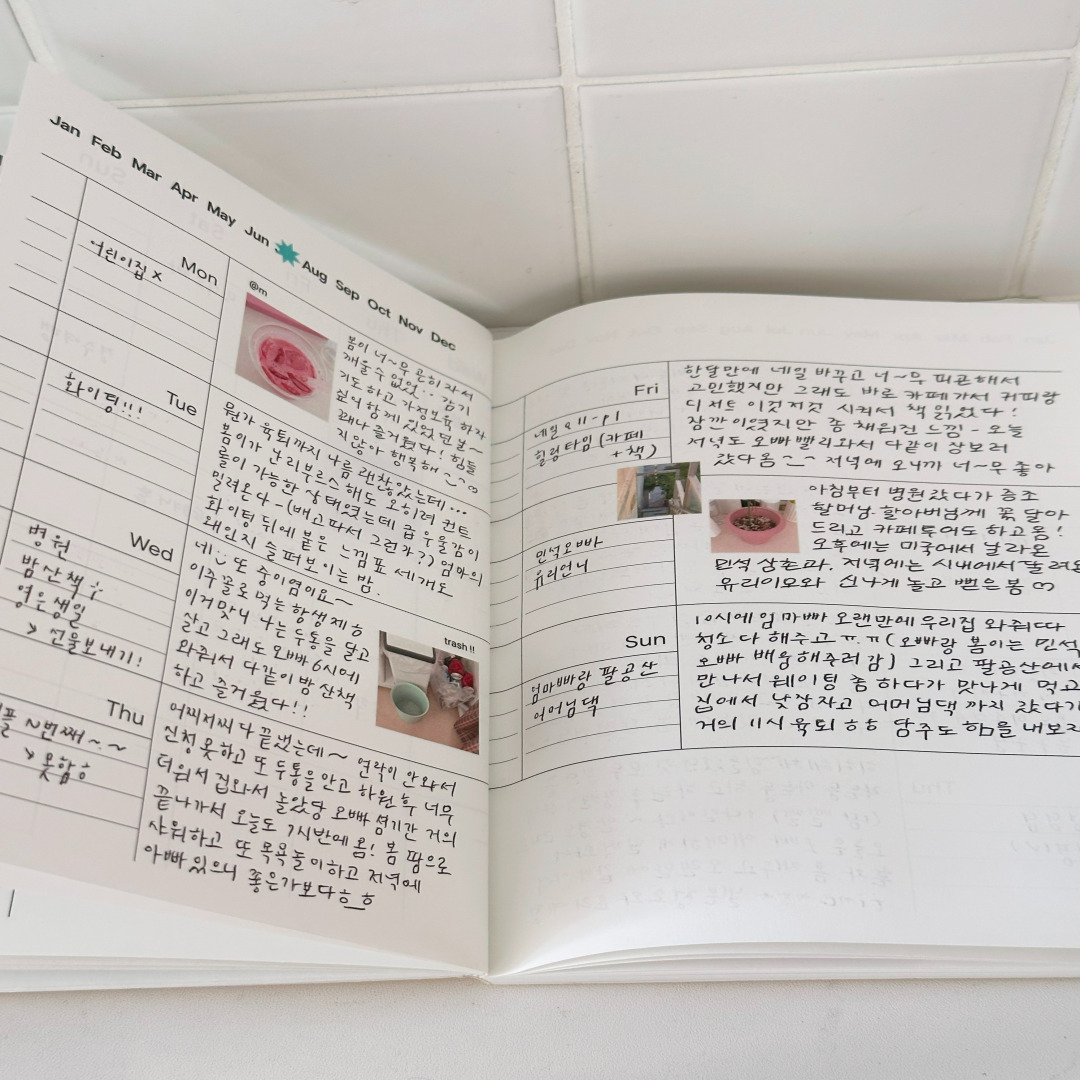 Jan Feb Mar Apr May Jun Aug Sep Oct Nov Dec
Mon
어린이집 x
@m
봄이 너~무 곤히 자서
깨울수 없었.. 감기
기도 하고 가정보육 하자
싶어 함께 있었던 날~
꽤나 즐거웠다! 힘들
지않아 행복해
Tue
화이팅!!!
뭔가 육퇴까지 나름 괜찮았는데...
봄이가 난리부르스해도 오히려 컨트
롤이 가능한 상태였는데 급 우울감이
밀려온다-(배고파서 그런가?) 엄마의
화이팅 뒤에 붙은 느낌표 세개도
왜인지 슬퍼보이는 밤.
Wed
병원
밤산책
영은생일
선물보내기!
네 또 중이염이요~
이주꼴로 먹는 항생제ㅎ
이거맞니 나는 두통을 달고
살고 그래도 오빠 6시에
와줘서 다같이 밤 산책
하고 즐거웠다!!
trash !!
Thu
플 N번째~~
못함ㅎ
어찌저찌 다 끝냈는데~ 연락이 안와서
신청 못하고 또 두통을 안고 하원 후 너무
더워서 집와서 놀았당 오빠 셤기간 거의
끝나가서 오늘도 7시반에 옴! 봄 땀으로
샤워하고 또 목욕놀이하고 저녁에
아빠있으니 좋은가보다ㅎㅎ
Fri
네일 11-P1
힐링타임 (카페
+책)
한달만에 네일 바꾸고 너~무 피곤해서
고민했지만 그래도 바로 카페가서 커피랑
디저트 이것저것 시켜서 책 읽었다!
잠깐이였지만 좀 채워진 느낌 - 오늘
저녁도 오빠 빨리와서 다같이 장보러
갔다옴 저녁에 오니까 너~무 좋아
민석오빠
유리언니
아침부터 병원갔다가 증조
할머님 할아버님께 꽃 달아
드리고 카페투어도 하고옴!
오후에는 미국에서 날라온
민석 삼촌과, 저녁에는 시내에서
유리이모와 신나게 놀고 뻗은 봄
Sun
엄마빠랑 팔공산
어머님댁
10시에 엄마빠 오랜만에 우리집 와줘따
청소 다 해주고ㅠ.ㅠ (오빠랑 봄이는 민석
오빠 배웅해주러 감) 그리고 팔공산에서
만나서 웨이팅 좀 하다가 맛나게 먹고
집에서 낮잠자고 어머님댁 까지 갔다가
거의 11시 육퇴 ㅎㅎ 담주도 힘을 내보자